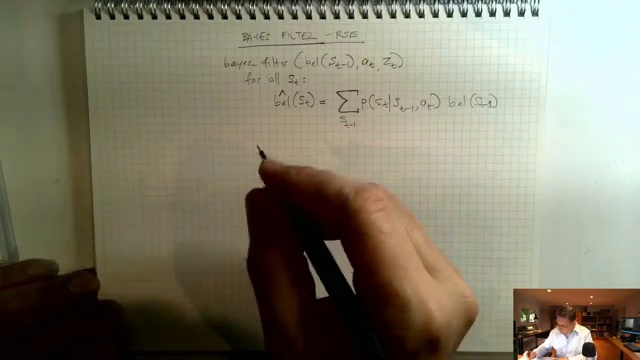 BAYES FILTER - RSE
bayes filter (bel(S_{t-1}), a_t, z_t)
for all S_t:
b̂el(S_t) = ∑_{S_{t-1}} p(S_t | S_{t-1}, a_t) bel(S_{t-1})